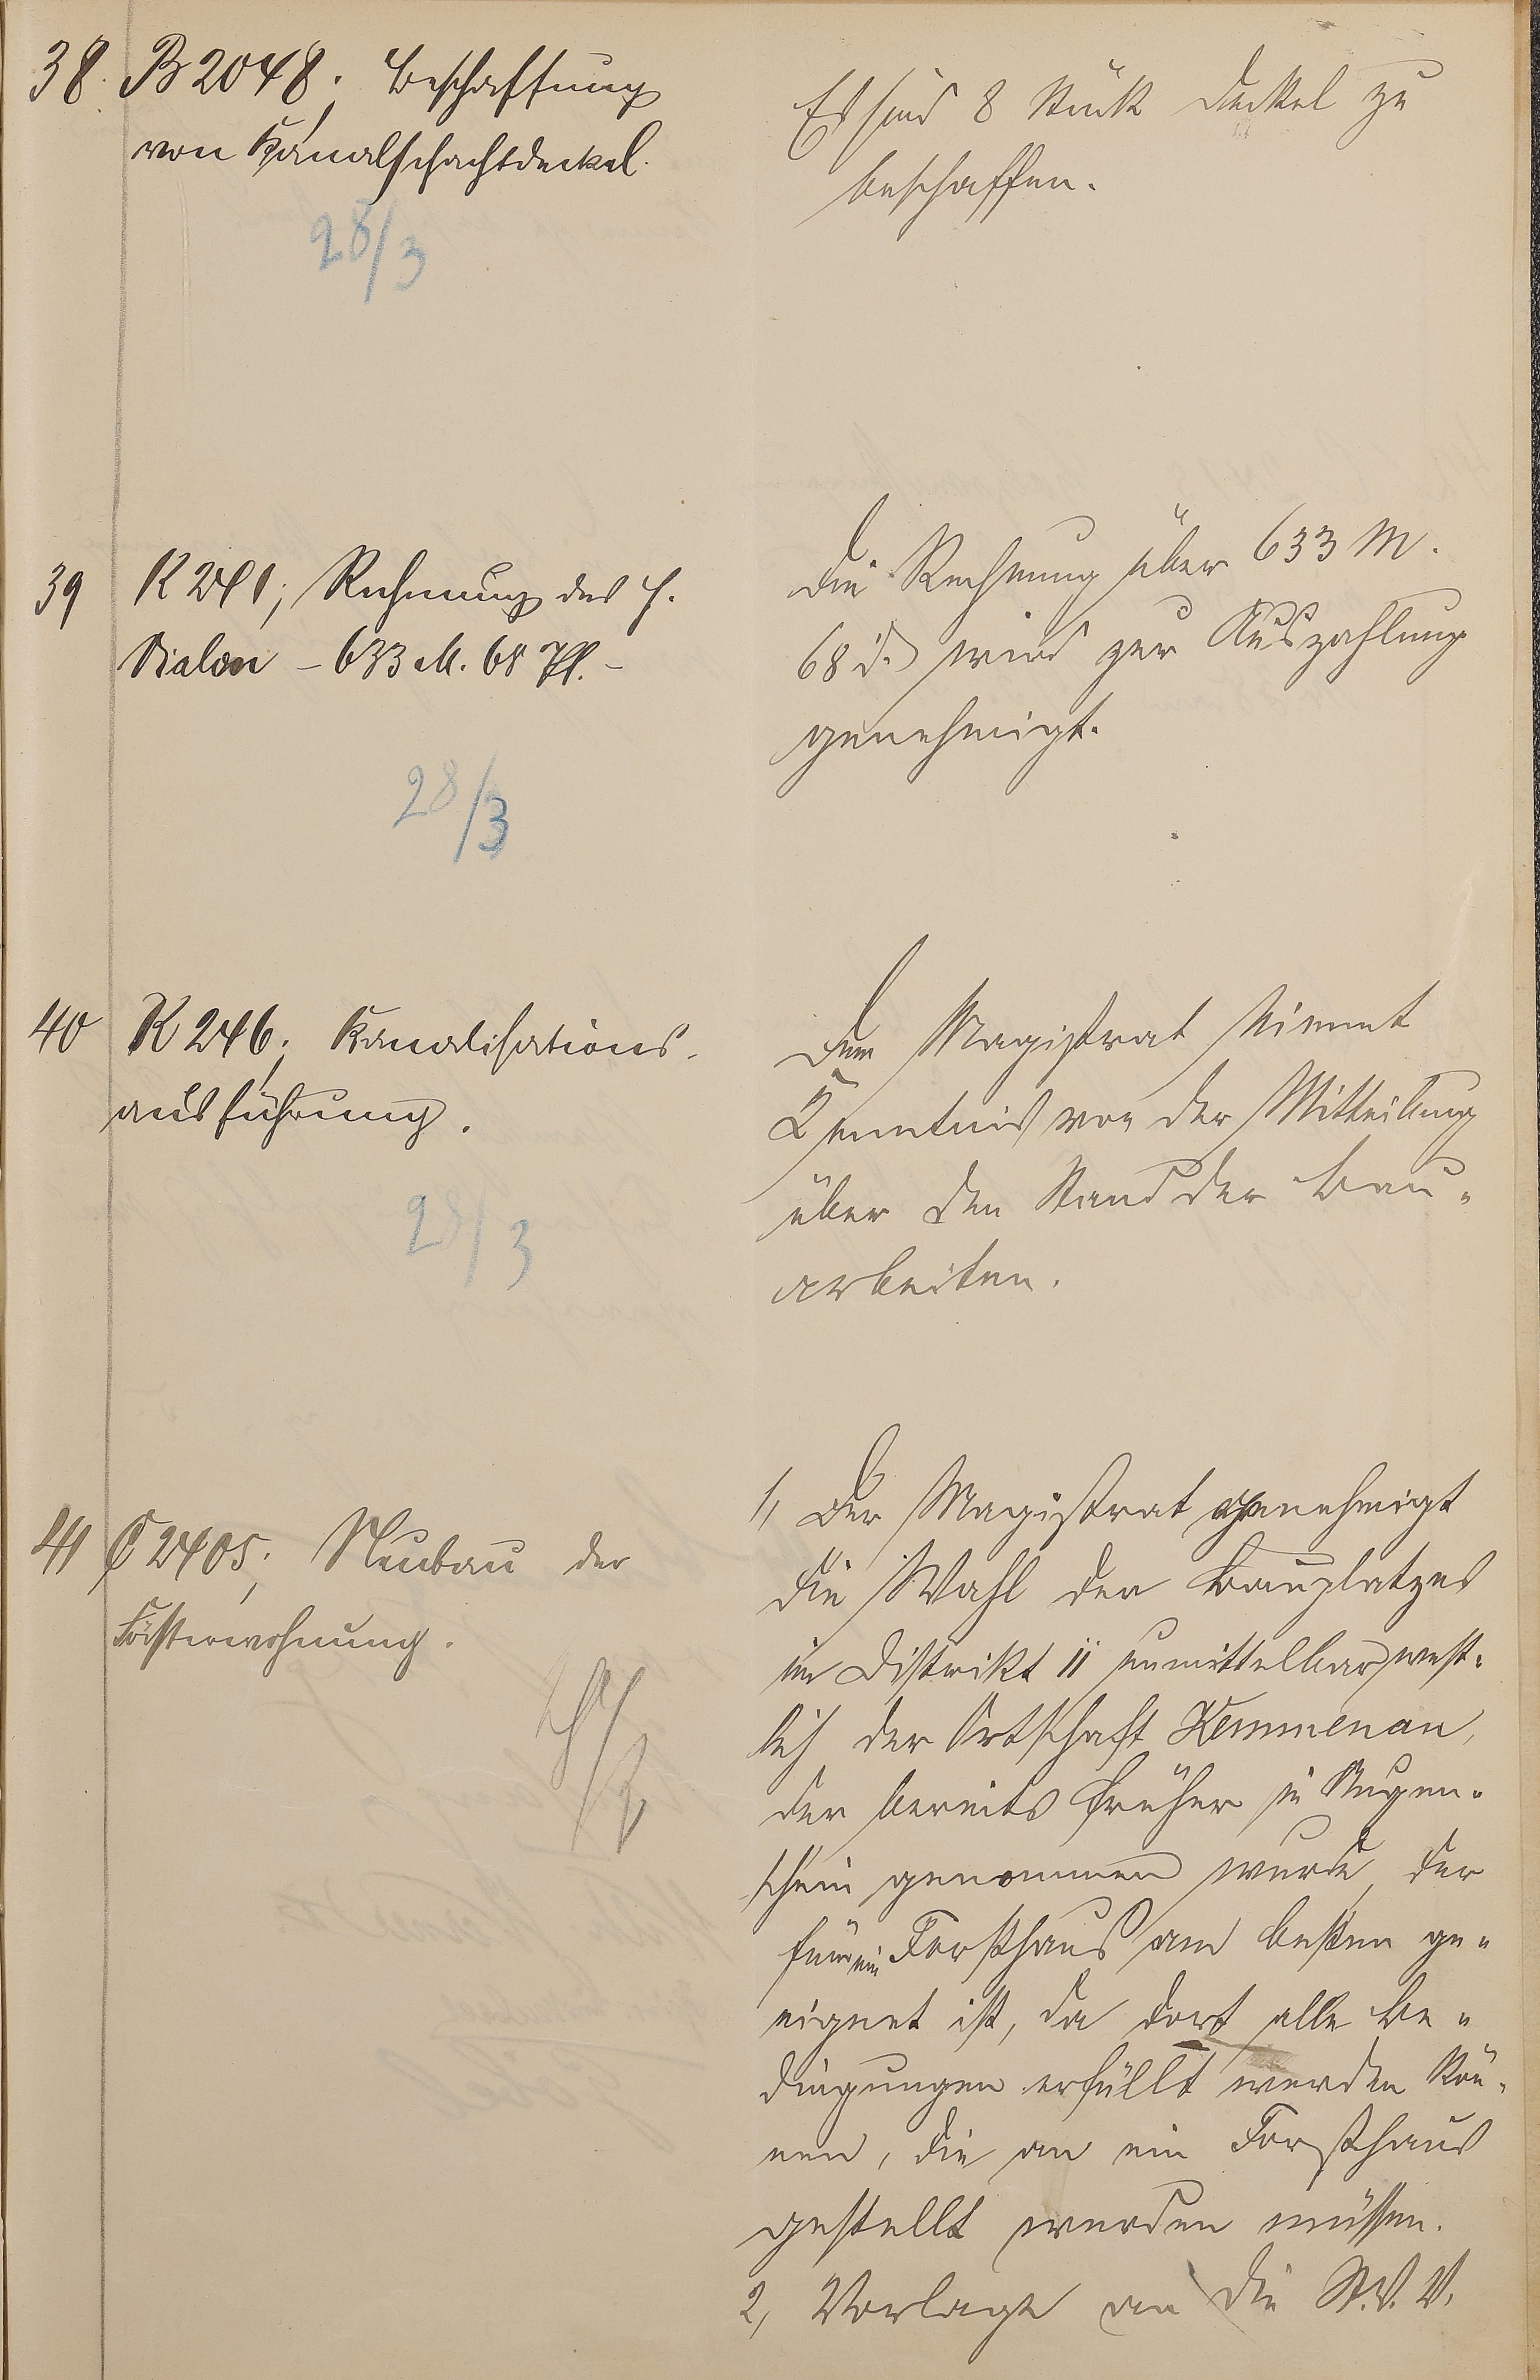 38. B 2048; Beschaffung
von Kanalschachtdeckel.
28/3
Es sind 8 Stück Deckel zu
beschaffen.
39 K 241; Rechnung des H.
– 633 M. 68 Pf. –
28/3
Die Rechnung über 633 M.
68 d. wird zur Auszahlung
genehmigt.
40 K 246; Kanalisations-
ausführung.
28/3
Der Magistrat nimmt
Kenntnis von der Mitteilung
über den Stand der Bau-
arbeiten.
41 C 2405; Neubau der
Försterwohnung.
28/3
1, Der Magistrat genehmigt
die Wahl des Bauplatzes
im Distrikt 11 unmittelbar west-
lich der Ortschaft Kemmenau,
der bereits früher in Augen-
schein genommen wurde, der
für ein Forsthaus am besten ge-
eignet ist, da dort alle Be-
dingungen erfüllt werden kön-
nen, die an ein Forsthaus
gestellt werden müssen.
2, Vorlage an die St. V. V.